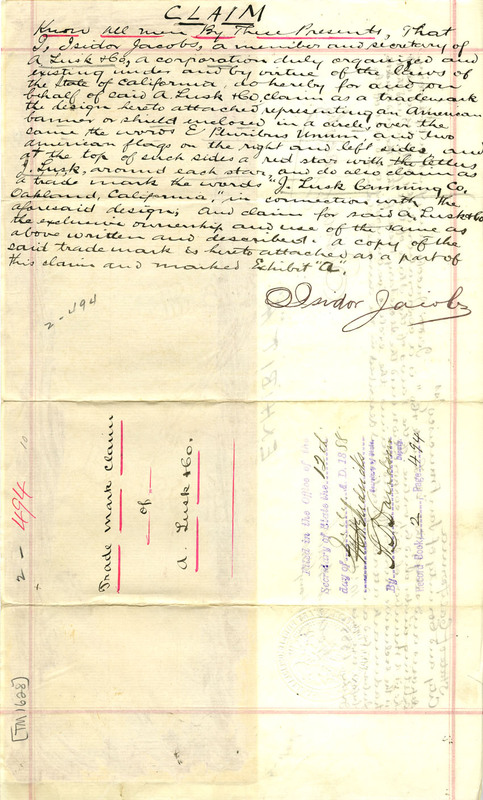 CLAIM
Know All men By These Presents, That
I, Isidor Jacobs, a member and secretary of
A Lusk & Co, a corporation duly organized and
existing under and by virtue of the laws of
the State of California, do hereby for and on
behalf of said A. Lusk & Co claim as a trademark
the design hereto attached, representing an American
banner or shield enclosed in a circle, over the
same the words E Pluribus Unum, and two
american flags on the right and left sides, and
at the top of such sides a red star with the letters
J. Lusk, around each star, and do also claim as
a trade mark the words "J. Lusk Canning Co.
Oakland, California," in connection with the
aforesaid design; And claim for said A. Lusk & Co
the exclusive ownership and use of the same as
above written and described. A copy of the
said trademark is hereto attached as a part of
this claim and marked Exhibit "A.
Isidor Jacobs
2-494
Trade mark Claim
of
A. Lusk & Co.
Filed in the Office of the
Secretary of State the 12th
day of A. D. 1888
Secretary of State
By Deputy
Record Book 2 Page 494
2-494
10
[TM1628]